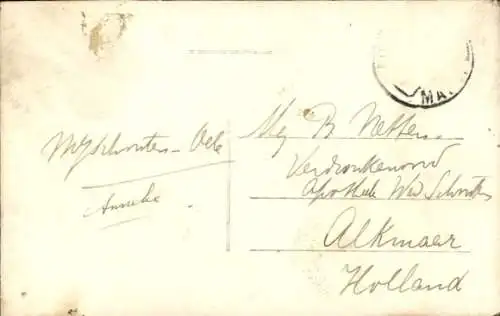 MA
Schouten - Oele
Anneke
Mej B Netten
Verdronkenoord
Apotheek Wed Schouten
Alkmaar
Holland